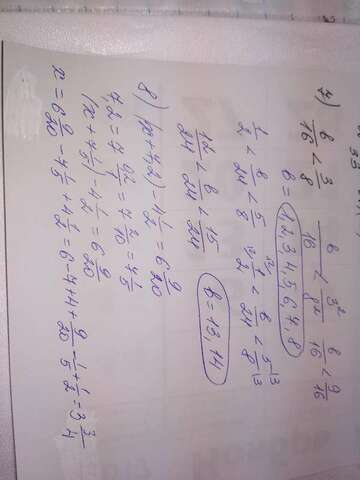 7) в/16 < 3/8   в/16 < 3²/8²   в/16 < 9/16
в = 1, 2, 3, 4, 5, 6, 7, 8
1/2 < в/24 < 5/8   12/ 12/ 1/2 < в/24 < 5/8 13 13
12/24 < в/24 < 15/24   в = 13, 14
8) (x + 7,2) - 4 1/2 = 6 9/20
7,2 = 7 0,2/1 = 7 2/10 = 7 1/5
(x + 7 1/5) - 4 1/2 = 6 9/20
x = 6 9/20 - 7 1/5 + 4 1/2 = 6 - 7 + 4 + 9/20 - 1/5 + 1/2 = 3 3/4